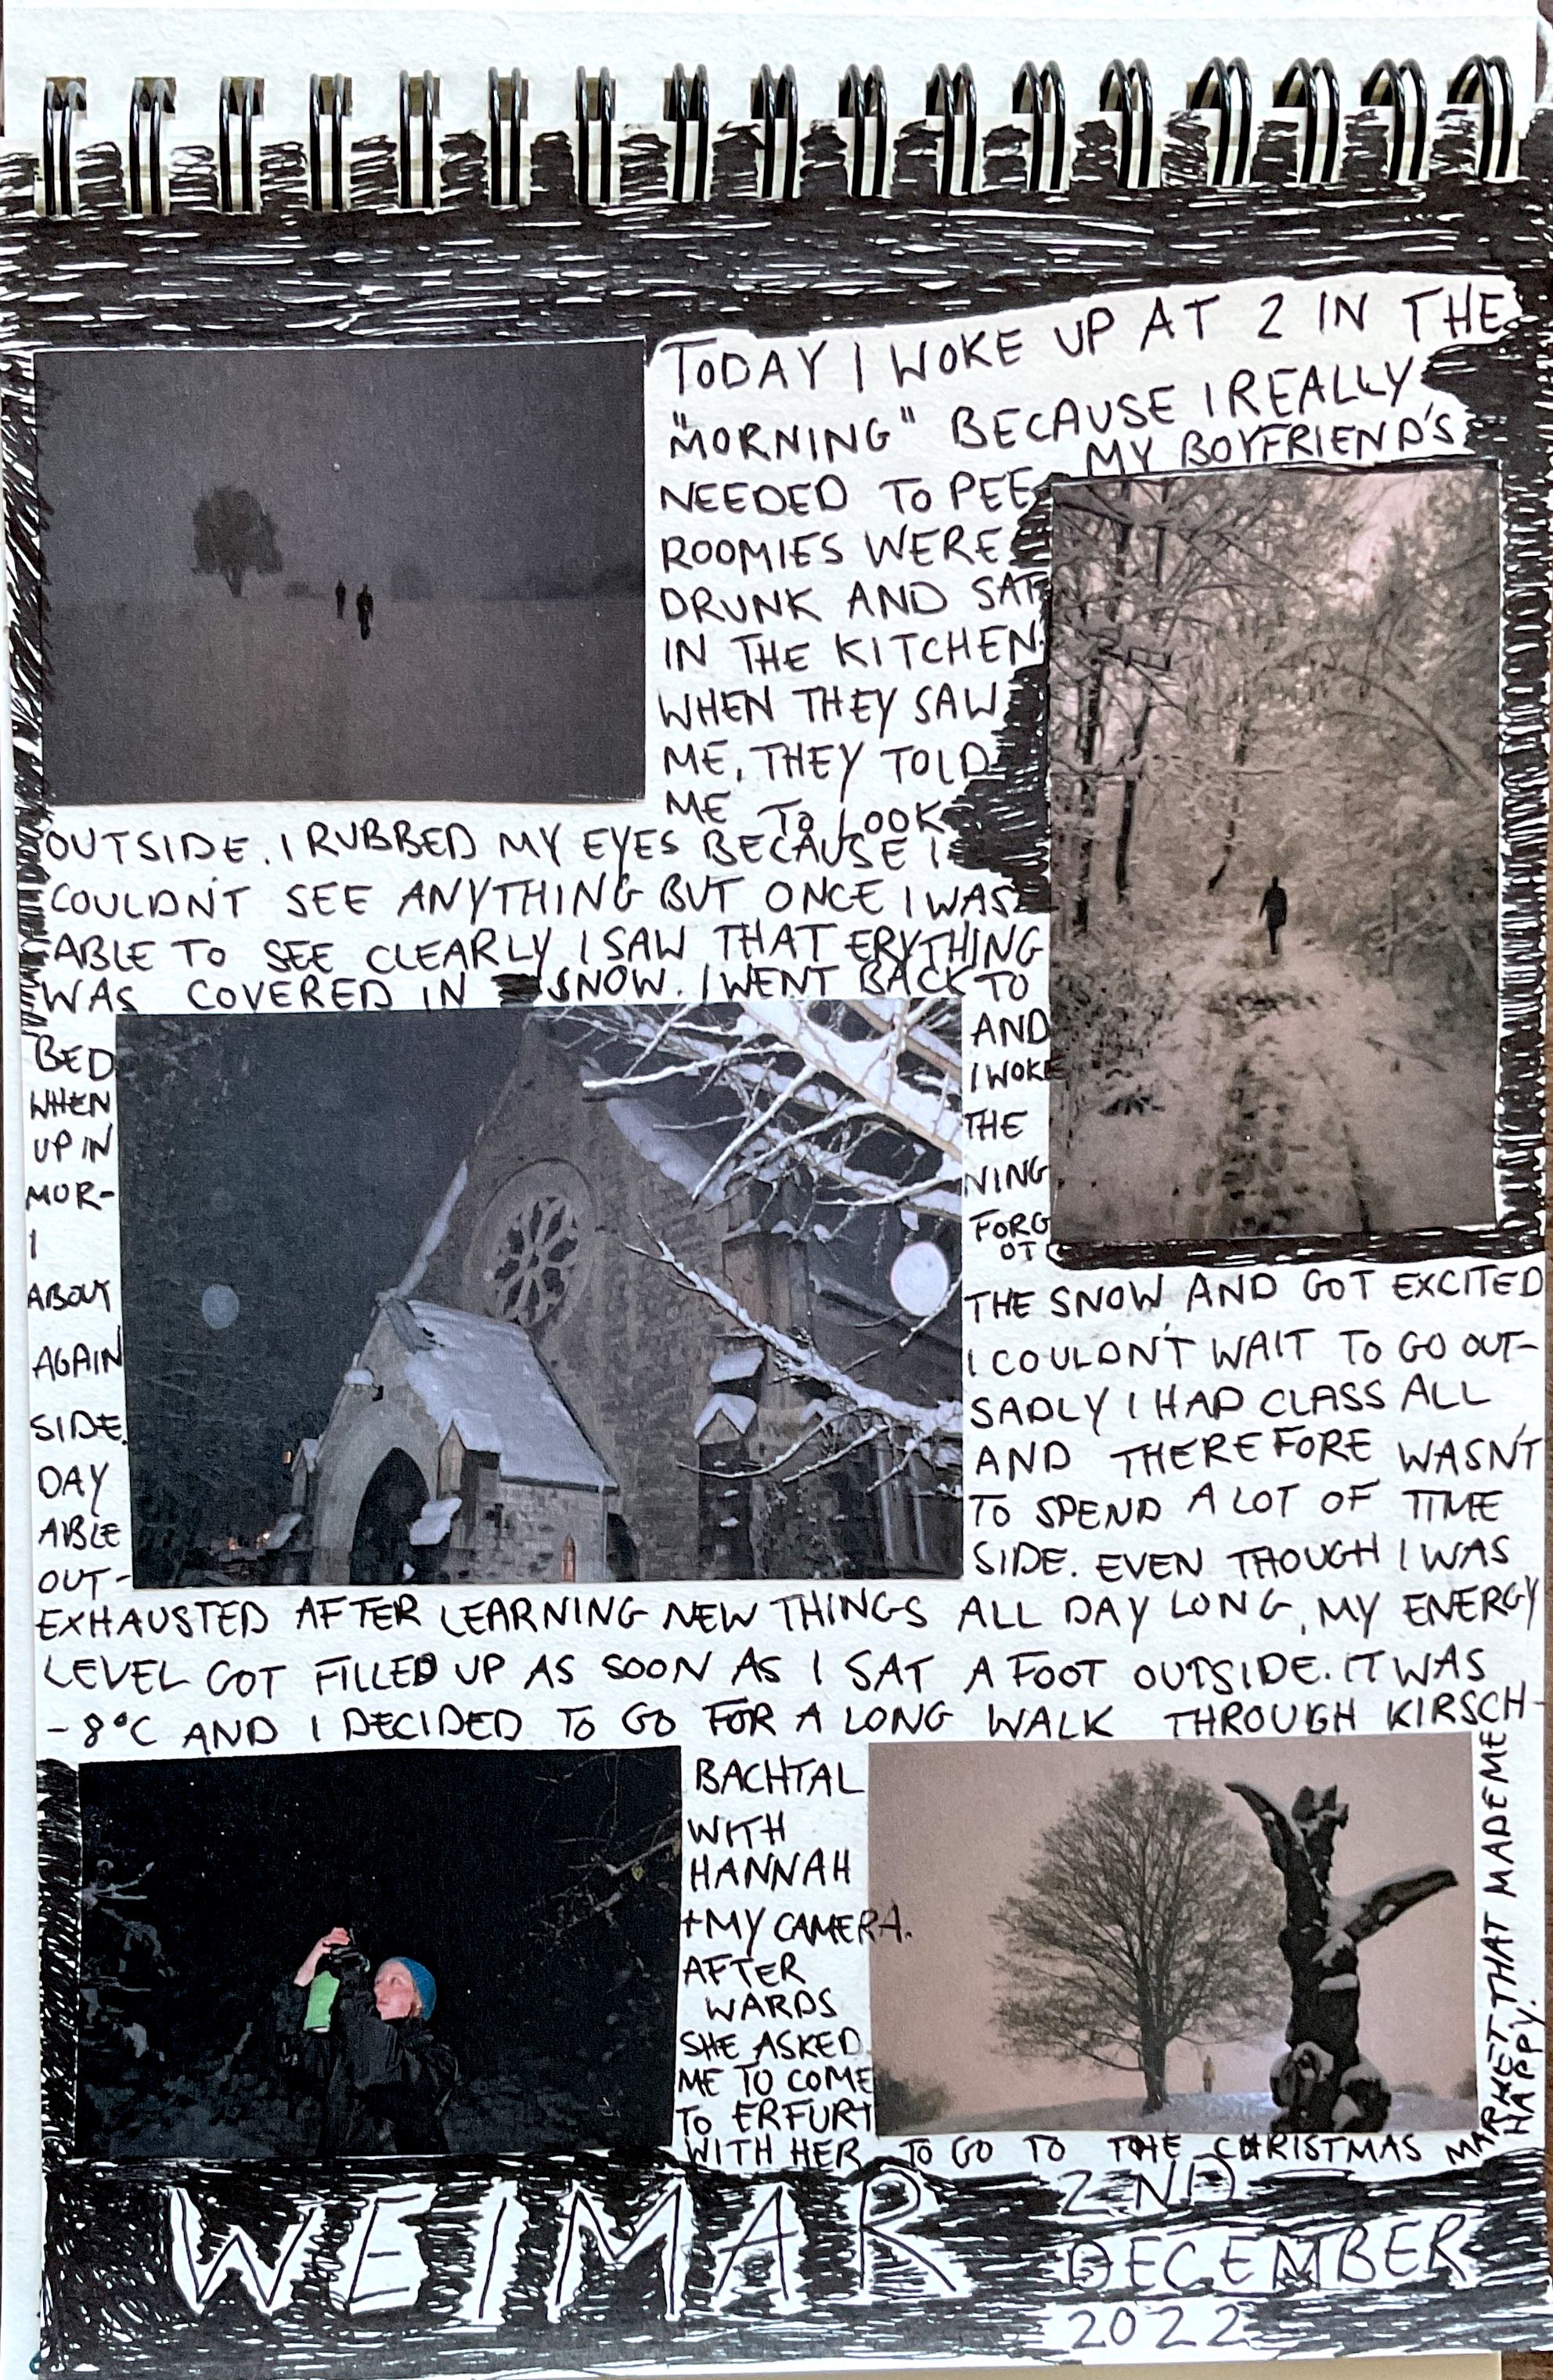 TODAY I WOKE UP AT 2 IN THE
"MORNING" BECAUSE I REALLY
NEEDED TO PEE MY BOYFRIEND'S
ROOMIES WERE
DRUNK AND SAT
IN THE KITCHEN.
WHEN THEY SAW
ME, THEY TOLD
ME TO LOOK
OUTSIDE. I RUBBED MY EYES BECAUSE I
COULDN'T SEE ANYTHING BUT ONCE I WAS
ABLE TO SEE CLEARLY I SAW THAT ERYTHING
WAS COVERED IN SNOW. I WENT BACK TO
BED AND
WHEN I WOKE
UP IN THE
MOR- NING
I FORG
OT
ABOUT THE SNOW AND GOT EXCITED
AGAIN I COULDN'T WAIT TO GO OUT-
SIDE. SADLY I HAD CLASS ALL
DAY AND THEREFORE WASN'T
ABLE TO SPEND A LOT OF TIME
OUT- SIDE. EVEN THOUGH I WAS
EXHAUSTED AFTER LEARNING NEW THINGS ALL DAY LONG, MY ENERGY
LEVEL GOT FILLED UP AS SOON AS I SAT A FOOT OUTSIDE. IT WAS
-8°C AND I DECIDED TO GO FOR A LONG WALK THROUGH KIRSCH-
BACHTAL
WITH
HANNAH
+MY CAMERA.
AFTER
WARDS
SHE ASKED
ME TO COME
TO ERFURT
WITH HER TO GO TO THE CHRISTMAS
MARKET THAT MADE ME
HAPPY.
WEIMAR
2ND
DECEMBER
2022